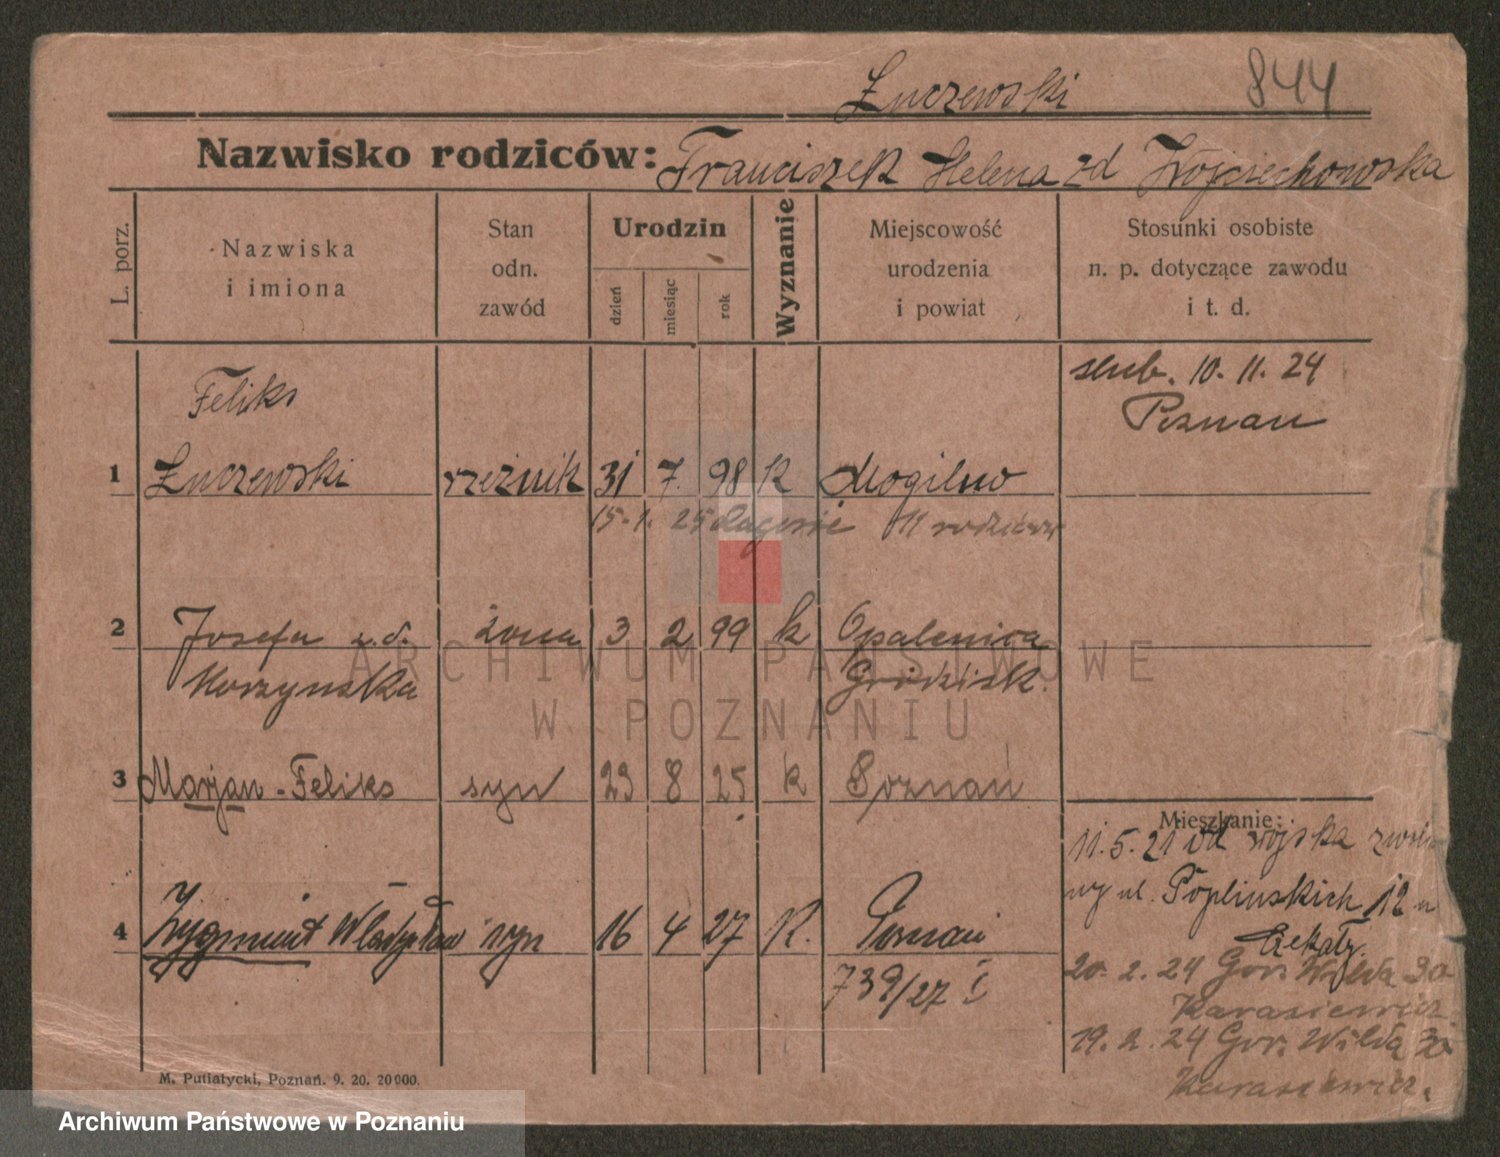 Łuczewski 844
Nazwisko rodziców: Franciszek Helena zd Wojciechowska
L. porz.
Nazwiska
i imiona
Stan
odn.
zawód
Urodzin
dzień
miesiąc
rok
Wyznanie
Miejscowość
urodzenia
i powiat
Stosunki osobiste
n. p. dotyczące zawodu
i t. d.
ślub. 10. 11. 24
Poznań
Feliks
1 Łuczewski rzeźnik 31 7. 98 k Mogilno
15. 1. 25 U rodziców
2 Josefa z.d. żona 3 2 99 k Opalenica
Korzyńska Grodzisk.
3 Marjan - Feliks syn 23 8 25 k Poznań
Mieszkanie:
11. 5. 21 od wojska
ul. Poplinskich 12
4 Zygmunt Władysław syn 16 4 27 K. Poznań
739/27
20. 2. 24 Gor. Wilda 30
Karasiewicz
19. 2. 24 Gor. Wilda 30
Karasiewicz.
M. Putiatycki, Poznań. 9. 20. 20000.
ARCHIWUM PAŃSTWOWE
W POZNANIU
Archiwum Państwowe w Poznaniu